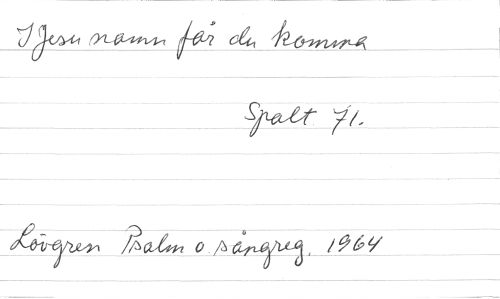 I Jesu namn får du komma
Spalt 71.
Lövgren Psalm o. sångreg. 1964